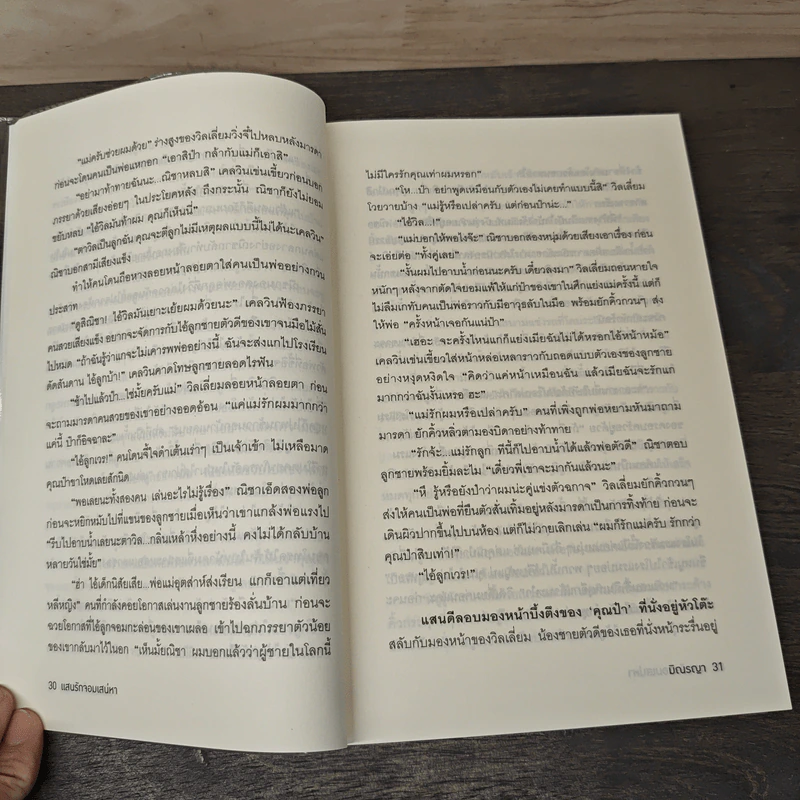 "แม่ครับช่วยผมด้วย" ร่างสูงของวิลเลี่ยมวิ่งจี๋ไปหลบหลังมารดา
ก่อนจะโดนคนเป็นพ่อแหกอก "เอาสิป๋า กล้ากับแม่ก็เอาสิ"
"อย่ามาท้าทายฉันนะ...ณิชาหลบสิ" เคลวินเข่นเขี้ยวก่อนบอก
ภรรยาด้วยเสียงอ่อยๆ ในประโยคหลัง ถึงกระนั้น ณิชาก็ยังไม่ยอม
ขยับหลบ "ไอ้วิลมันท้าผม คุณก็เห็นนี่"
"ตาวิลเป็นลูกฉัน คุณจะตีลูกไม่มีเหตุผลแบบนี้ไม่ได้นะเคลวิน"
ณิชาบอกสามีเสียงแข็ง
ทำให้คนโดนถือหางลอยหน้าลอยตาใส่คนเป็นพ่ออย่างกวน
ประสาท
"ดูสิณิชา! ไอ้วิลมันเยาะเย้ยผมด้วยนะ" เคลวินฟ้องภรรยา
คนสวยเสียงแข็ง อยากจะจัดการกับไอ้ลูกชายตัวดีของเขาจนมือไม้สั่น
ไปหมด "ถ้าฉันรู้ว่าแกจะไม่เคารพพ่ออย่างนี้ ฉันจะส่งแกไปโรงเรียน
ดัดสันดาน ไอ้ลูกบ้า!" เคลวินคาดโทษลูกชายลอดไรฟัน
"ช้าไปแล้วป๋า...ใช่มั้ยครับแม่" วิลเลี่ยมลอยหน้าลอยตา ก่อน
จะถามมารดาคนสวยของเขาอย่างออดอ้อน "แค่แม่รักผมมากกว่า
แค่นี้ ป๋าก็อิจฉาละ"
"ไอ้ลูกเวร!" คนโดนจี้ใจดำเต้นเร่าๆ เป็นเจ้าเข้า ไม่เหลือมาด
คุณป๋าขาโหดเลยสักนิด
"พอเลยนะทั้งสองคน เล่นอะไรไม่รู้เรื่อง" ณิชาเอ็ดสองพ่อลูก
ก่อนจะหยิกหมับไปที่แขนของลูกชายเมื่อเห็นว่าเขาแกล้งพ่อแรงไป
"รีบไปอาบน้ำเลยนะตาวิล...กลิ่นเหล้าหึ่งอย่างนี้ คงไม่ได้กลับบ้าน
หลายวันใช่มั้ย"
"ฮ่า ไอ้เด็กนิสัยเสีย...พ่อแม่อุตส่าห์ส่งเรียน แกก็เอาแต่เที่ยว
หลีหญิง" คนที่กำลังคอยโอกาสเล่นงานลูกชายร้องลั่นบ้าน ก่อนจะ
ฉวยโอกาสที่ไอ้ลูกจอมกะล่อนของเขาเผลอ เข้าไปฉกภรรยาตัวน้อย
ของเขากลับมาไว้ในอก "เห็นมั้ยณิชา ผมบอกแล้วว่าผู้ชายในโลกนี้
30 แสนรักจอมเสน่หา
ไม่มีใครรักคุณเท่าผมหรอก"
"โห...ป๋า อย่าพูดเหมือนกับตัวเองไม่เคยทำแบบนี้สิ" วิลเลี่ยม
โวยวายบ้าง "แม่รู้หรือเปล่าครับ แต่ก่อนป๋าน่ะ..."
"ไอ้วิล...!"
"แม่บอกให้พอไงจ๊ะ" ณิชาบอกสองหนุ่มด้วยเสียงเอาเรื่อง ก่อน
จะเอ่ยต่อ "ทั้งคู่เลย"
"งั้นผมไปอาบน้ำก่อนนะครับ เดี๋ยวลงมา" วิลเลี่ยมถอนหายใจ
หนักๆ หลังจากตัดใจยอมแพ้ให้แก่ป๋าของเขาในศึกแย่งแม่ครั้งนี้ แต่ก็
ไม่ลืมเกทับคนเป็นพ่อราวกับมีอาวุธลับในมือ พร้อมยักคิ้วกวนๆ ส่ง
ให้พ่อ "ครั้งหน้าเจอกันแน่ป๋า"
"เฮอะ จะครั้งไหนแกก็แย่งเมียฉันไม่ได้หรอกไอ้หน้าหม้อ"
เคลวินเข่นเขี้ยวใส่หน้าหล่อเหลาราวกับถอดแบบตัวเองของลูกชาย
อย่างหงุดหงิดใจ "คิดว่าแค่หน้าเหมือนฉัน แล้วเมียฉันจะรักแก
มากกว่าฉันงั้นเหรอ ฮะ"
"แม่รักผมหรือเปล่าครับ" คนที่เพิ่งถูกพ่อหยามหันมาถาม
มารดา ยักคิ้วหลิ่วตามองบิดาอย่างท้าทาย
"รักจ้ะ...แม่รักลูก ทีนี้ก็ไปอาบน้ำได้แล้วพ่อตัวดี" ณิชาตอบ
ลูกชายพร้อมยิ้มละไม "เดี๋ยวพี่เขาจะมากันแล้วนะ"
"หึ รู้หรือยังป๋าว่าผมน่ะคู่แข่งตัวฉกาจ" วิลเลี่ยมยักคิ้วกวนๆ
ส่งให้คนเป็นพ่อที่ยืนตัวสั่นเทิ้มอยู่หลังมารดาเป็นการทิ้งท้าย ก่อนจะ
เดินผิวปากขึ้นไปบนห้อง แต่ก็ไม่วายเลิกเล่น "ผมก็รักแม่ครับ รักกว่า
คุณป๋าสิบเท่า!"
"ไอ้ลูกเวร!"
แสนดีลอบมองหน้าบึ้งตึงของ 'คุณป๋า' ที่นั่งอยู่หัวโต๊ะ
สลับกับมองหน้าของวิลเลี่ยม น้องชายตัวดีของเธอที่นั่งหน้าระรื่นอยู่
มิณรญา 31